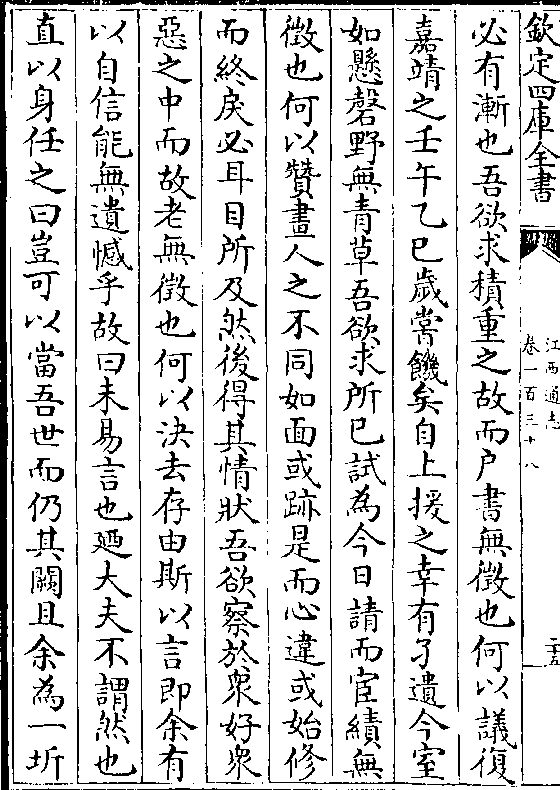 欽定四庫全書
江西通志
卷一百三十八
二十五
必有漸也吾欲求積重之故而戶書無徵也何以議復
嘉靖之壬午乙巳歲常饑矣自上援之幸有孑遺今室
如懸磬野無青草吾欲求所已試為今日請而宦績無
徵也何以贊畫人之不同如面或跡是而心違或始修
而終戾必耳目所及然後得其情狀吾欲察於衆好衆
惡之中而故老無徵也何以決去存由斯以言即余有
以自信能無遺憾乎故曰未易言也廼大夫不謂然也
直以身任之曰豈可以當吾世而仍其闕且余為一圻